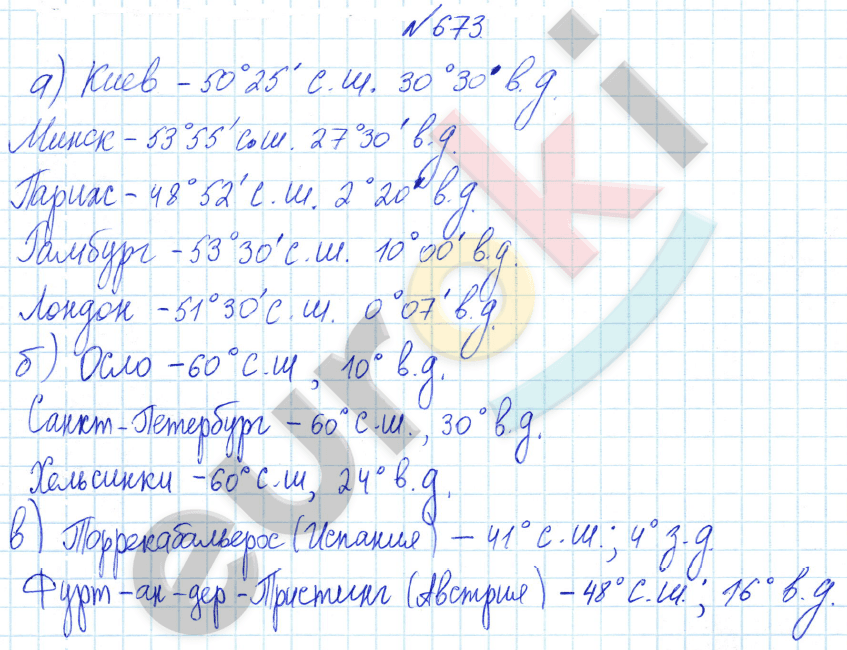 №673.
а) Киев - 50°25' с.ш. 30°30' в.д.
Минск - 53°55' с.ш. 27°30' в.д.
Париж - 48°52' с.ш. 2°20' в.д.
Гамбург - 53°30' с.ш. 10°00' в.д.
Лондон - 51°30' с.ш. 0°07' в.д.
б) Осло - 60° с.ш, 10° в.д.
Санкт-Петербург - 60° с.ш., 30° в.д.
Хельсинки - 60° с.ш, 24° в.д.
в) Торрекабальерос (Испания) - 41° с.ш.; 4° з.д.
Фурт-ан-дер-Тристинг (Австрия) - 48° с.ш.; 16° в.д.
euroki